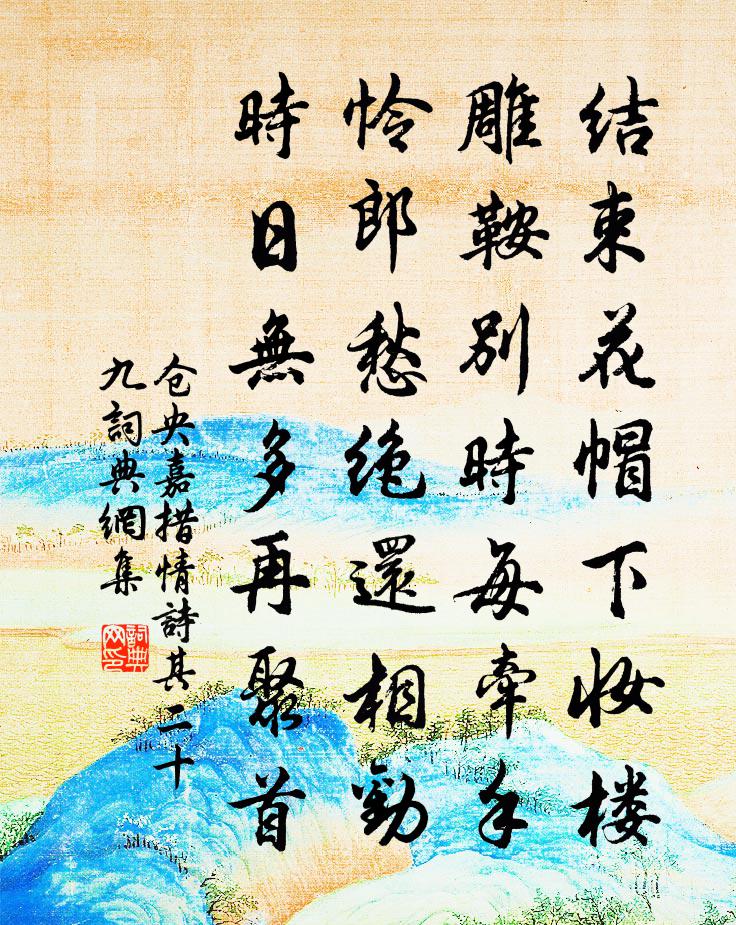 结束花帽下妆楼
雕鞍别時每牵手
怜郎愁绝還相勁
時日無多再聚首
仓央嘉措情詩其二十
九詞典網集
詞典
网印